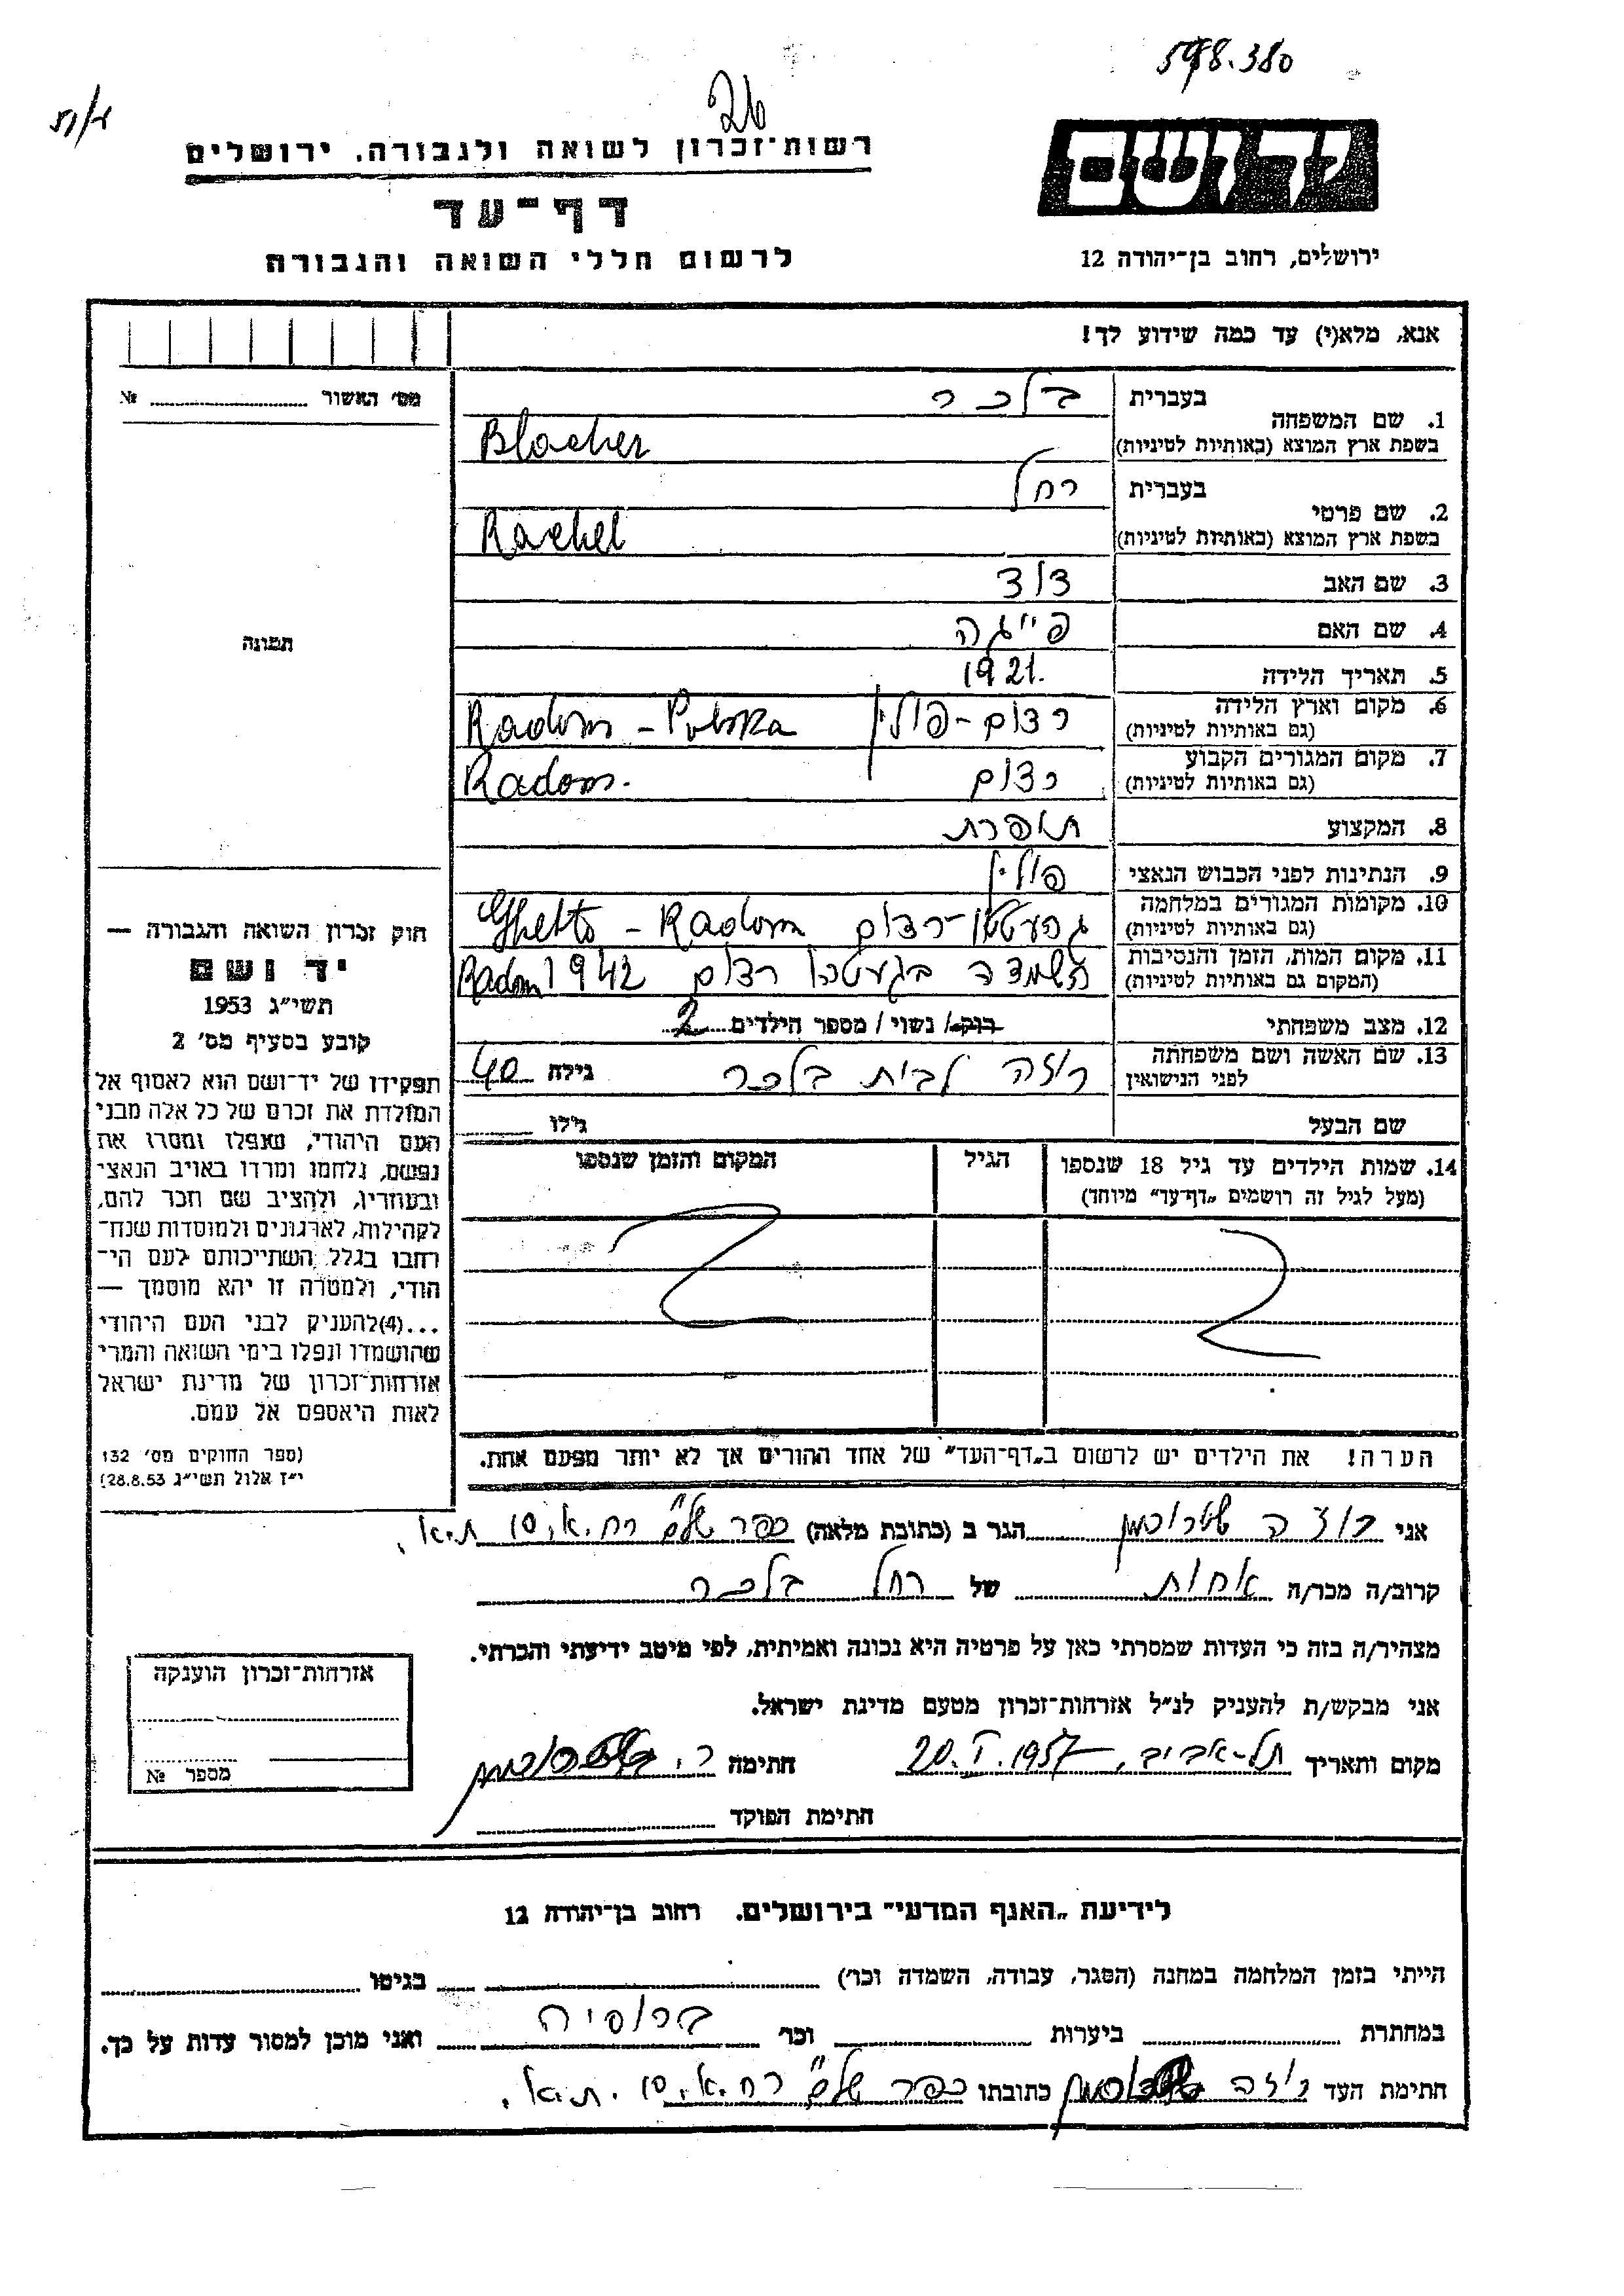 598.380
26
רשות־זכרון לשואה ולגבורה. ירושלים
דף־עד
לרשום חללי השואה והגבורה
יד ושם
ירושלים, רחוב בן־יהודה 12
אנא, מלא(י) עד כמה שידוע לך!
מס׳ האשור ........ №
1. שם המשפחה
בעברית בלכר
בשפת ארץ המוצא (באותיות לטיניות) Blacher
2. שם פרטי
בעברית רחל
בשפת ארץ המוצא (באותיות לטיניות) Rachel
3. שם האב דוד
4. שם האם פייגה
5. תאריך הלידה 1921.
6. מקום וארץ הלידה רדום - פולין Radom - Polska
(גם באותיות לטיניות)
7. מקום המגורים הקבוע רדום Radom.
(גם באותיות לטיניות)
8. המקצוע תופרת
9. הנתינות לפני הכבוש הנאצי פולין
10. מקומות המגורים במלחמה גהעטו - רדום Ghetto - Radom
(גם באותיות לטיניות)
11. מקום המות, הזמן והנסיבות בגעטו רדום 1942 Radom
(המקום גם באותיות לטיניות)
12. מצב משפחתי רוק/ נשוי/ מספר הילדים 2
13. שם האשה ושם משפחתה לפני הנישואין רוזה לבית בלכר גילה 40
שם הבעל גילו
14. שמות הילדים עד גיל 18 שנספו הגיל המקום והזמן שנספו
(מעל לגיל זה רושמים „דף־עד״ מיוחד)
הערה! את הילדים יש לרשום ב„דף־העד״ של אחד ההורים אך לא יותר מפעם אחת.
תמונה
חוק זכרון השואה והגבורה —
יד ושם
תשי״ג 1953
קובע בסעיף מס׳ 2
תפקידו של יד־ושם הוא לאסוף אל
המולדת את זכרם של כל אלה מבני
העם היהודי, שנפלו ומסרו את
נפשם, נלחמו ומרדו באויב הנאצי
ובעוזריו, ולהציב שם וזכר להם,
לקהילות, לארגונים ולמוסדות שנח־
רבו בגלל השתייכותם לעם הי־
הודי, ולמטרה זו יהא מוסמך —
...(4)להעניק לבני העם היהודי
שהושמדו ונפלו בימי השואה והמרי
אזרחות־זכרון של מדינת ישראל
לאות היאספם אל עמם.
(ספר החוקים מס׳ 132
י״ז אלול תשי״ג 28.8.53)
אני רוזה הגר ב (כתובת מלאה) כפר שלם רח. א. 10 ת.א.
קרוב/ה מכר/ה אחות של רחל בלכר
מצהיר/ה בזה כי העדות שמסרתי כאן על פרטיה היא נכונה ואמיתית, לפי מיטב ידיעתי והכרתי.
אני מבקש/ת להעניק לנ״ל אזרחות־זכרון מטעם מדינת ישראל.
מקום ותאריך תל-אביב, 20.I.1957 חתימה ר.
חתימת הפוקד
אזרחות־זכרון הוענקה
מספר №
לידיעת „האנף המדעי״ בירושלים. רחוב בן־יהודה 12
הייתי בזמן המלחמה במחנה (הסגר, עבודה, השמדה וכו׳) ........ בגיטו ........
במחתרת ........ ביערות ........ וכו׳ ברוסיה ואני מוכן למסור עדות על כך.
חתימת העד רוזה כתובתו כפר שלם רח. א. 10. ת.א.